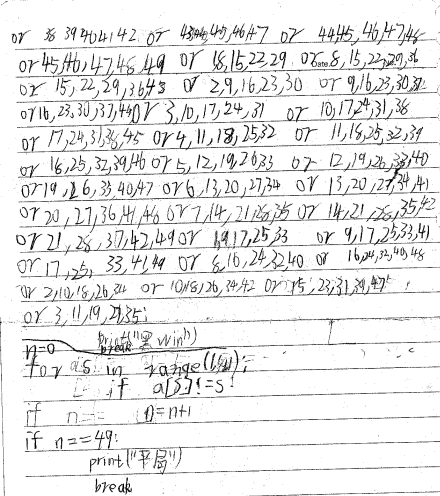 or 38 39 40 41,42 or 43,44,45,46,47 or 44,45,46,47,48
or 45,46,47,48,49 or 18,15,22,29 or 8,15,22,29,36
or 15,22,29,36,43 or 2,9,16,23,30 or 9,16,23,30,37
or 16,23,30,37,44 or 3,10,17,24,31 or 10,17,24,31,38
or 17,24,31,38,45 or 4,11,18,25,32 or 11,18,25,32,39
or 18,25,32,39,46 or 5,12,19,26,33 or 12,19,26,33,40
or 19,26,33,40,47 or 6,13,20,27,34 or 13,20,27,34,41
or 20,27,36,41,48 or 7,14,21,28,35 or 14,21,28,35,42
or 21,28,37,42,49 or 1,9,17,25,33 or 9,17,25,33,41
or 17,25,33,41,49 or 8,16,24,32,40 or 16,24,32,40,48
or 2,10,18,26,34 or 10,18,26,34,42 or 15,23,31,39,47
or 3,11,19,27,35:
print("黑win")
n=0 break
for as in range(1,50):
if a[s]!=s
if n== n=n+1
if n==49:
print("平局")
break